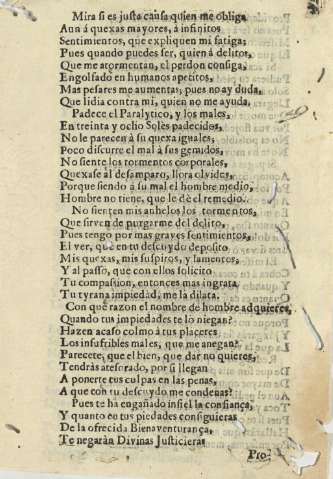 Mira si es justa causa quien me obliga
Aun á quexas mayores, à infinitos
Sentimientos, que expliquen mi fatiga;
Pues quando puedes ser, quien à delitos,
Que me atormentan, el perdon consiga,
Engolfado en humanos apetitos,
Mas pesares me aumentas, pues no ay duda,
Que lidia contra mi, quien no me ayuda,
Padece el Paralytico, y los males,
En treinta y ocho Soles padecidos,
No le parecen à su quexa iguales;
Poco discurre el mal à sus gemidos,
No siente los tormentos corporales,
Quexase al desamparo, llora olvidos,
Porque siendo à su mal el hombre medio,
Hombre no tiene, que le dè el remedio.
No sienten mis anhelos los tormentos,
Que sirven de purgarme del delito,
Pues tengo por mas graves sentimientos,
El ver, que en tu descuydo deposito
Mis quexas, mis suspiros, y lamentos,
Y al passo, que con ellos solicito
Tu compassion, entonces mas ingrata,
Tu tyrana impiedad, me la dilata.
Con què razon el nombre de hombre adquieres,
Quando tus impiedades te lo niegan?
Hazen acaso colmo à tus placeres
Los insufribles males, que me anegan?
Parecete, que el bien, que dar no quieres,
Tendràs atesorado, por si llegan
A ponerte tus culpas en las penas,
A que con tu descuydo me condenas?
Pues te ha engañado infiel la confiança,
Y quanto en tus piedades consiguieras
De la ofrecida Bienaventurança,
Te negaràn Divinas Justicieras
Pro-